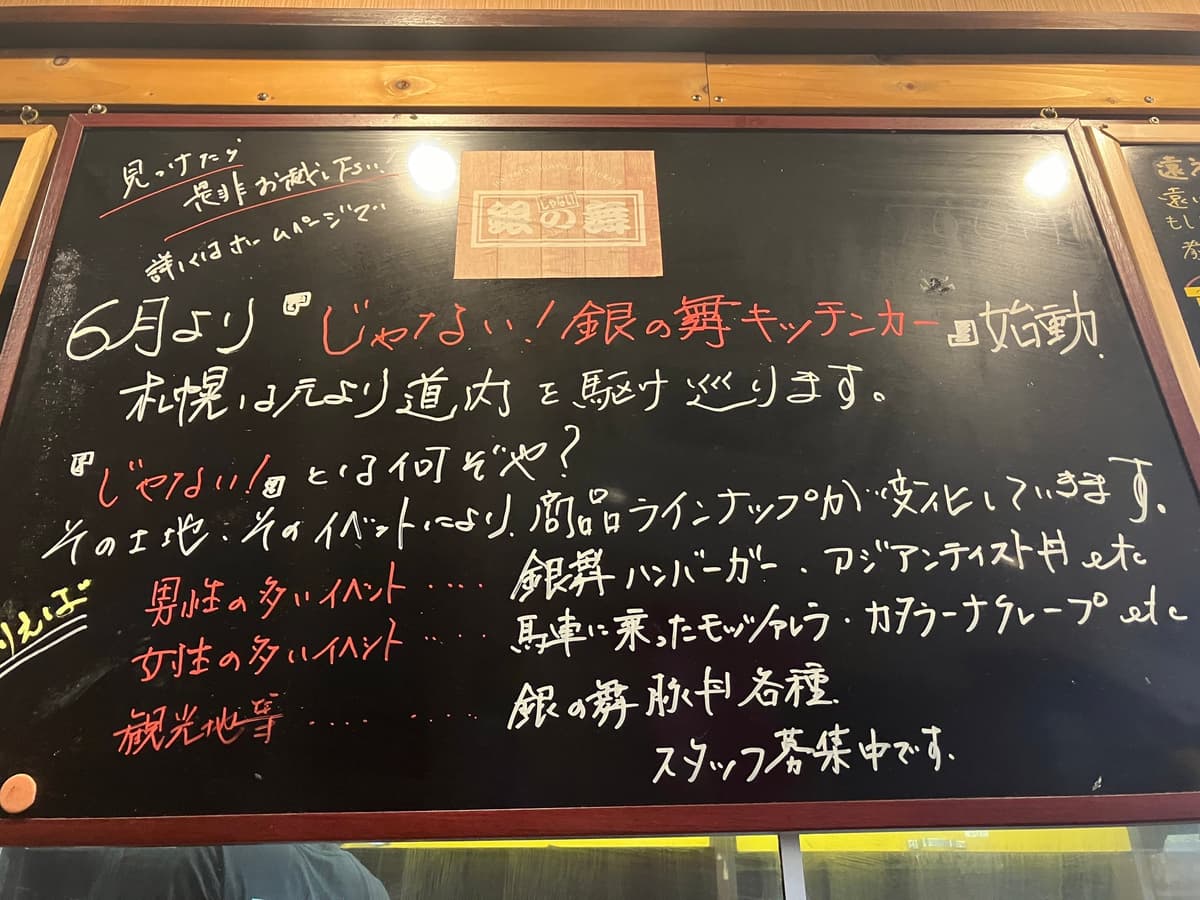 見つけたら
是非お越し下さい!
詳しくはホームページで
じゃない!
銀の舞
6月より『じゃない!銀の舞キッチンカー』始動.
札幌は元より道内を駆け巡ります。
『じゃない!』とは何ぞや?
その土地、そのイベントにより、商品ラインナップが変化していきます。
例えば
男性の多いイベント ‥‥ 銀舞ハンバーガー、アジアンテイスト丼 etc
女性の多いイベント ‥‥ 馬車に乗ったモッツァレラ・カタラーナクレープ etc
観光地等 ‥‥ ‥‥ 銀の舞 豚丼各種.
スタッフ募集中です.
遠
遠い
もし